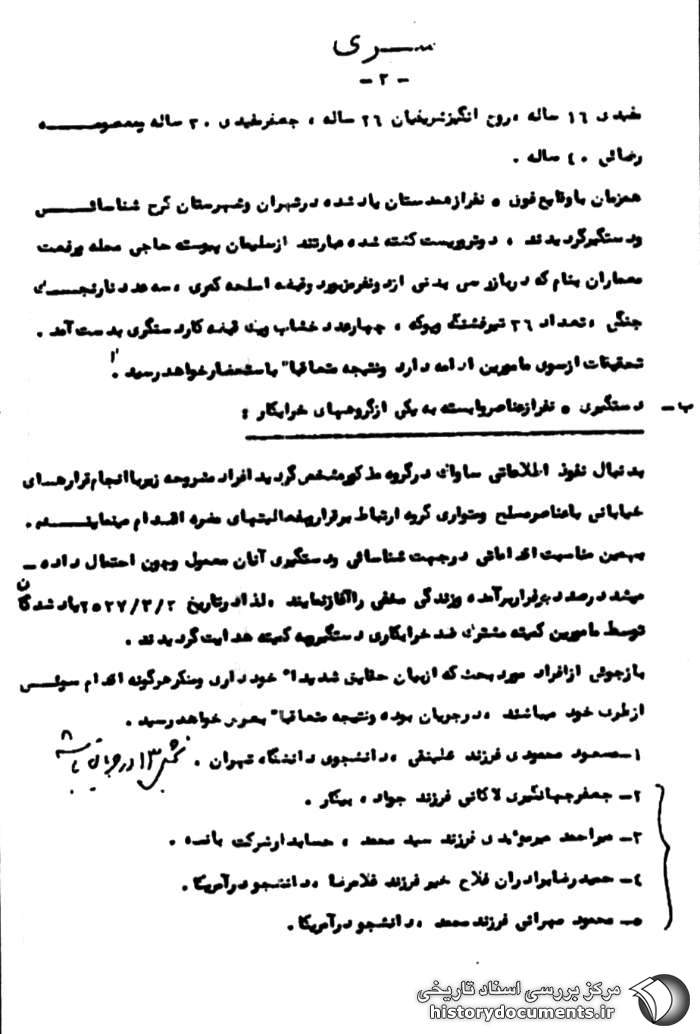 سری
- ۲ -
مفیدی ۱۶ ساله ، روح انگیز شریفیان ۲۶ ساله ، جعفر مفیدی ۲۰ ساله و معصومه
رضائی ۴۰ ساله .
همزمان با وقایع فوق ۵ نفر از همدستان یاد شده در تهران و شهرستان کرج شناسائی
و دستگیر گردیدند ، دو تروریست کشته شده عبارتند از سلیمان پیوسته حاجی محله و رفعت
معماران بنام که در بازرسی بدنی از دو نفر مزبور دو قبضه اسلحه کمری ، سه عدد نارنجک
جنگی ، تعداد ۳۶ تیر فشنگ و پوکه ، چهار عدد خشاب و یک قبضه کارد سنگری بدست آمد .
تحقیقات از سوی مامورین ادامه دارد و نتیجه متعاقبا" باستحضار خواهد رسید .
ب - دستگیری ۵ نفر از عناصر وابسته به یکی از گروههای خرابکار :
بدنبال نفوذ اطلاعاتی ساواک در گروه مذکور مشخص گردید افراد مشروحه زیر با انجام قرارهای
خیابانی با عناصر مسلح و متواری گروه ارتباط برقرار و بفعالیتهای مضره اقدام مینمایند .
بهمین مناسبت اقداماتی در جهت شناسائی و دستگیری آنان معمول و چون احتمال داده -
میشد درصدد فرار برآمده و زندگی مخفی را آغاز نمایند ، لذا در تاریخ ۲۵۳۷/۳/۲ یاد شدگان
توسط مامورین کمیته مشترک ضد خرابکاری دستگیر و به کمیته هدایت گردیدند .
بازجوئی از افراد مورد بحث که از بیان حقایق شدیدا" خود داری و منکر هرگونه اقدام سوئی
از طرف خود میباشند ، در جریان بوده و نتیجه متعاقبا" بعرض خواهد رسید .
۱- مسعود محمودی فرزند علینقی ، دانشجوی دانشگاه تهران .
۲- جعفر جهانگیری لاکانی فرزند جواد ، بیکار .
۳- میر احمد میر موئیدی فرزند سید محمد ، حسابدار شرکت .
۴- حمید رضا برادران فلاح خیر فرزند غلامرضا ، دانشجو در آمریکا .
۵- محمود مهرائی فرزند محمد ، دانشجو در آمریکا .
مرکز بررسی اسناد تاریخی
historydocuments.ir